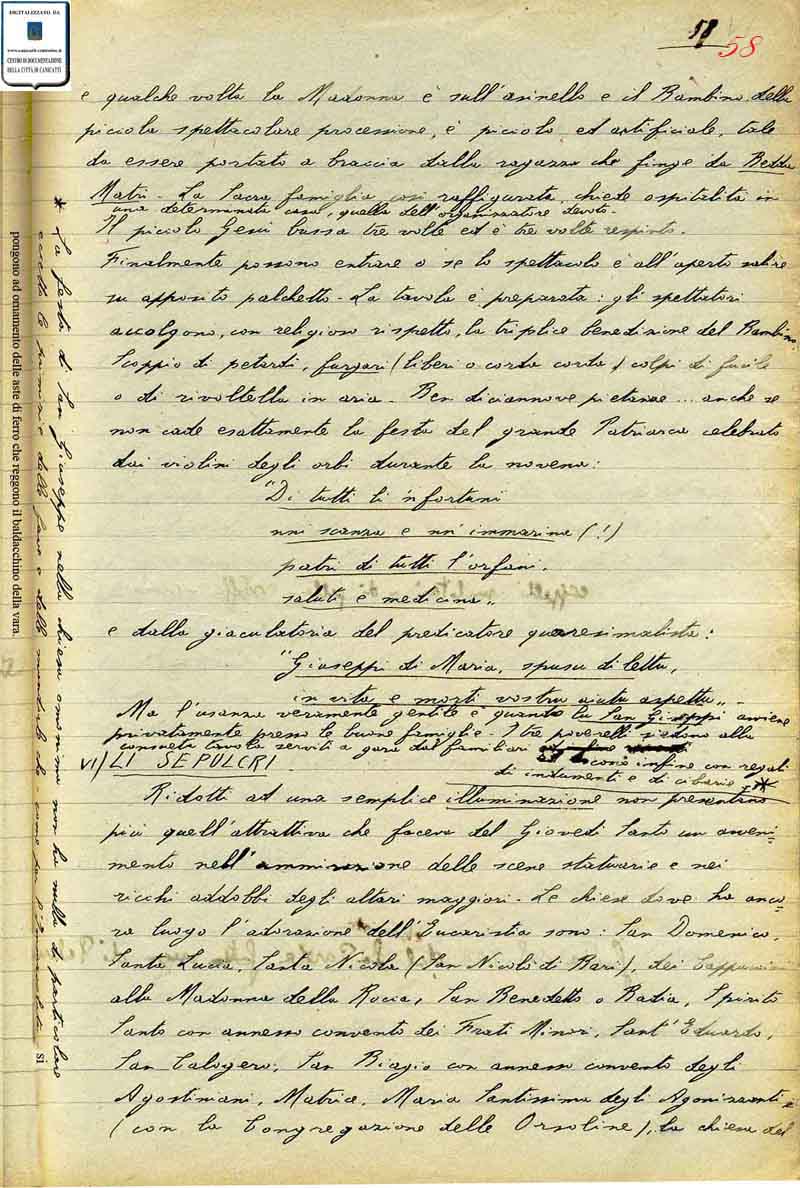 DIGITALIZZATO DA
www.canicatti-centrodoc.it
CENTRO DI DOCUMENTAZIONE
DELLA CITTÀ DI CANICATTÌ
58
58
e qualche volta la Madonna è sull'asinello e il Bambino della
piccola spettacolare processione, è piccolo ed artificiale, tale
da essere portato a braccia dalla ragazza che finge da Bedda
Matri - La Sacra famiglia così raffigurata, chiede ospitalità in
una determinata casa, quella dell'organizzatore devoto.
Il piccolo Gesù bussa tre volte ed è tre volte respinto.
Finalmente possono entrare o se lo spettacolo è all'aperto salire
su apposito palchetto - La tavola è preparata: gli spettatori
accolgono, con religioso rispetto, la triplice benedizione del Bambino.
Scoppio di petardi, furgari (liberi o corda corda) colpi di fucile
o di rivoltella in aria - Ben diciannove pietanze ... anche se
non cade esattamente la festa del grande Patriarca celebrato
dai violini degli orbi durante la novena:
"Di tutti li 'nfortuni
nni scanza e nn' immarina (!)
patri di tutti l'orfani,
saluti e medicina"
e dalla giaculatoria del predicatore quaresimalista:
"Giuseppi di Maria, spusu dilettu,
in vita e morti vostru aiutu aspettu" -
Ma l'usanza veramente gentile è quando lu San Giseppi avviene
privatamente presso le buone famiglie - I tre poverelli siedono alla
consueta tavola serviti a gara dai familiari
ed escono infine con regali
di indumenti e di cibarie - *
VI/ LI SEPULCRI
Ridotti ad una semplice illuminazione non presentano
più quell'attrattiva che faceva del Giovedì Santo un avveni=
mento nell'ammirazione delle scene statuarie e nei
ricchi addobbi degli altari maggiori - Le chiese dove ha anco=
ra luogo l'adorazione dell'Eucaristia sono: San Domenico,
Santa Lucia, Santa Nicola (San Nicolò di Bari), dei Cappuccini
alla Madonna della Rocca, San Benedetto o Badia, Spirito
Santo con annesso convento dei Frati Minori, Sant'Eduardo,
San Calogero, San Biagio con annesso convento degli
Agostiniani, Matrice, Maria Santissima degli Agonizzanti
(con la Congregazione delle Orsoline), la chiesa del
* La festa di San Giuseppe nella chiesa omonima non ha nulla di particolare
eccetto le primizie delle fave e delle mandorle che - come per
si
pongono ad ornamento delle aste di ferro che reggono il baldacchino della vara.